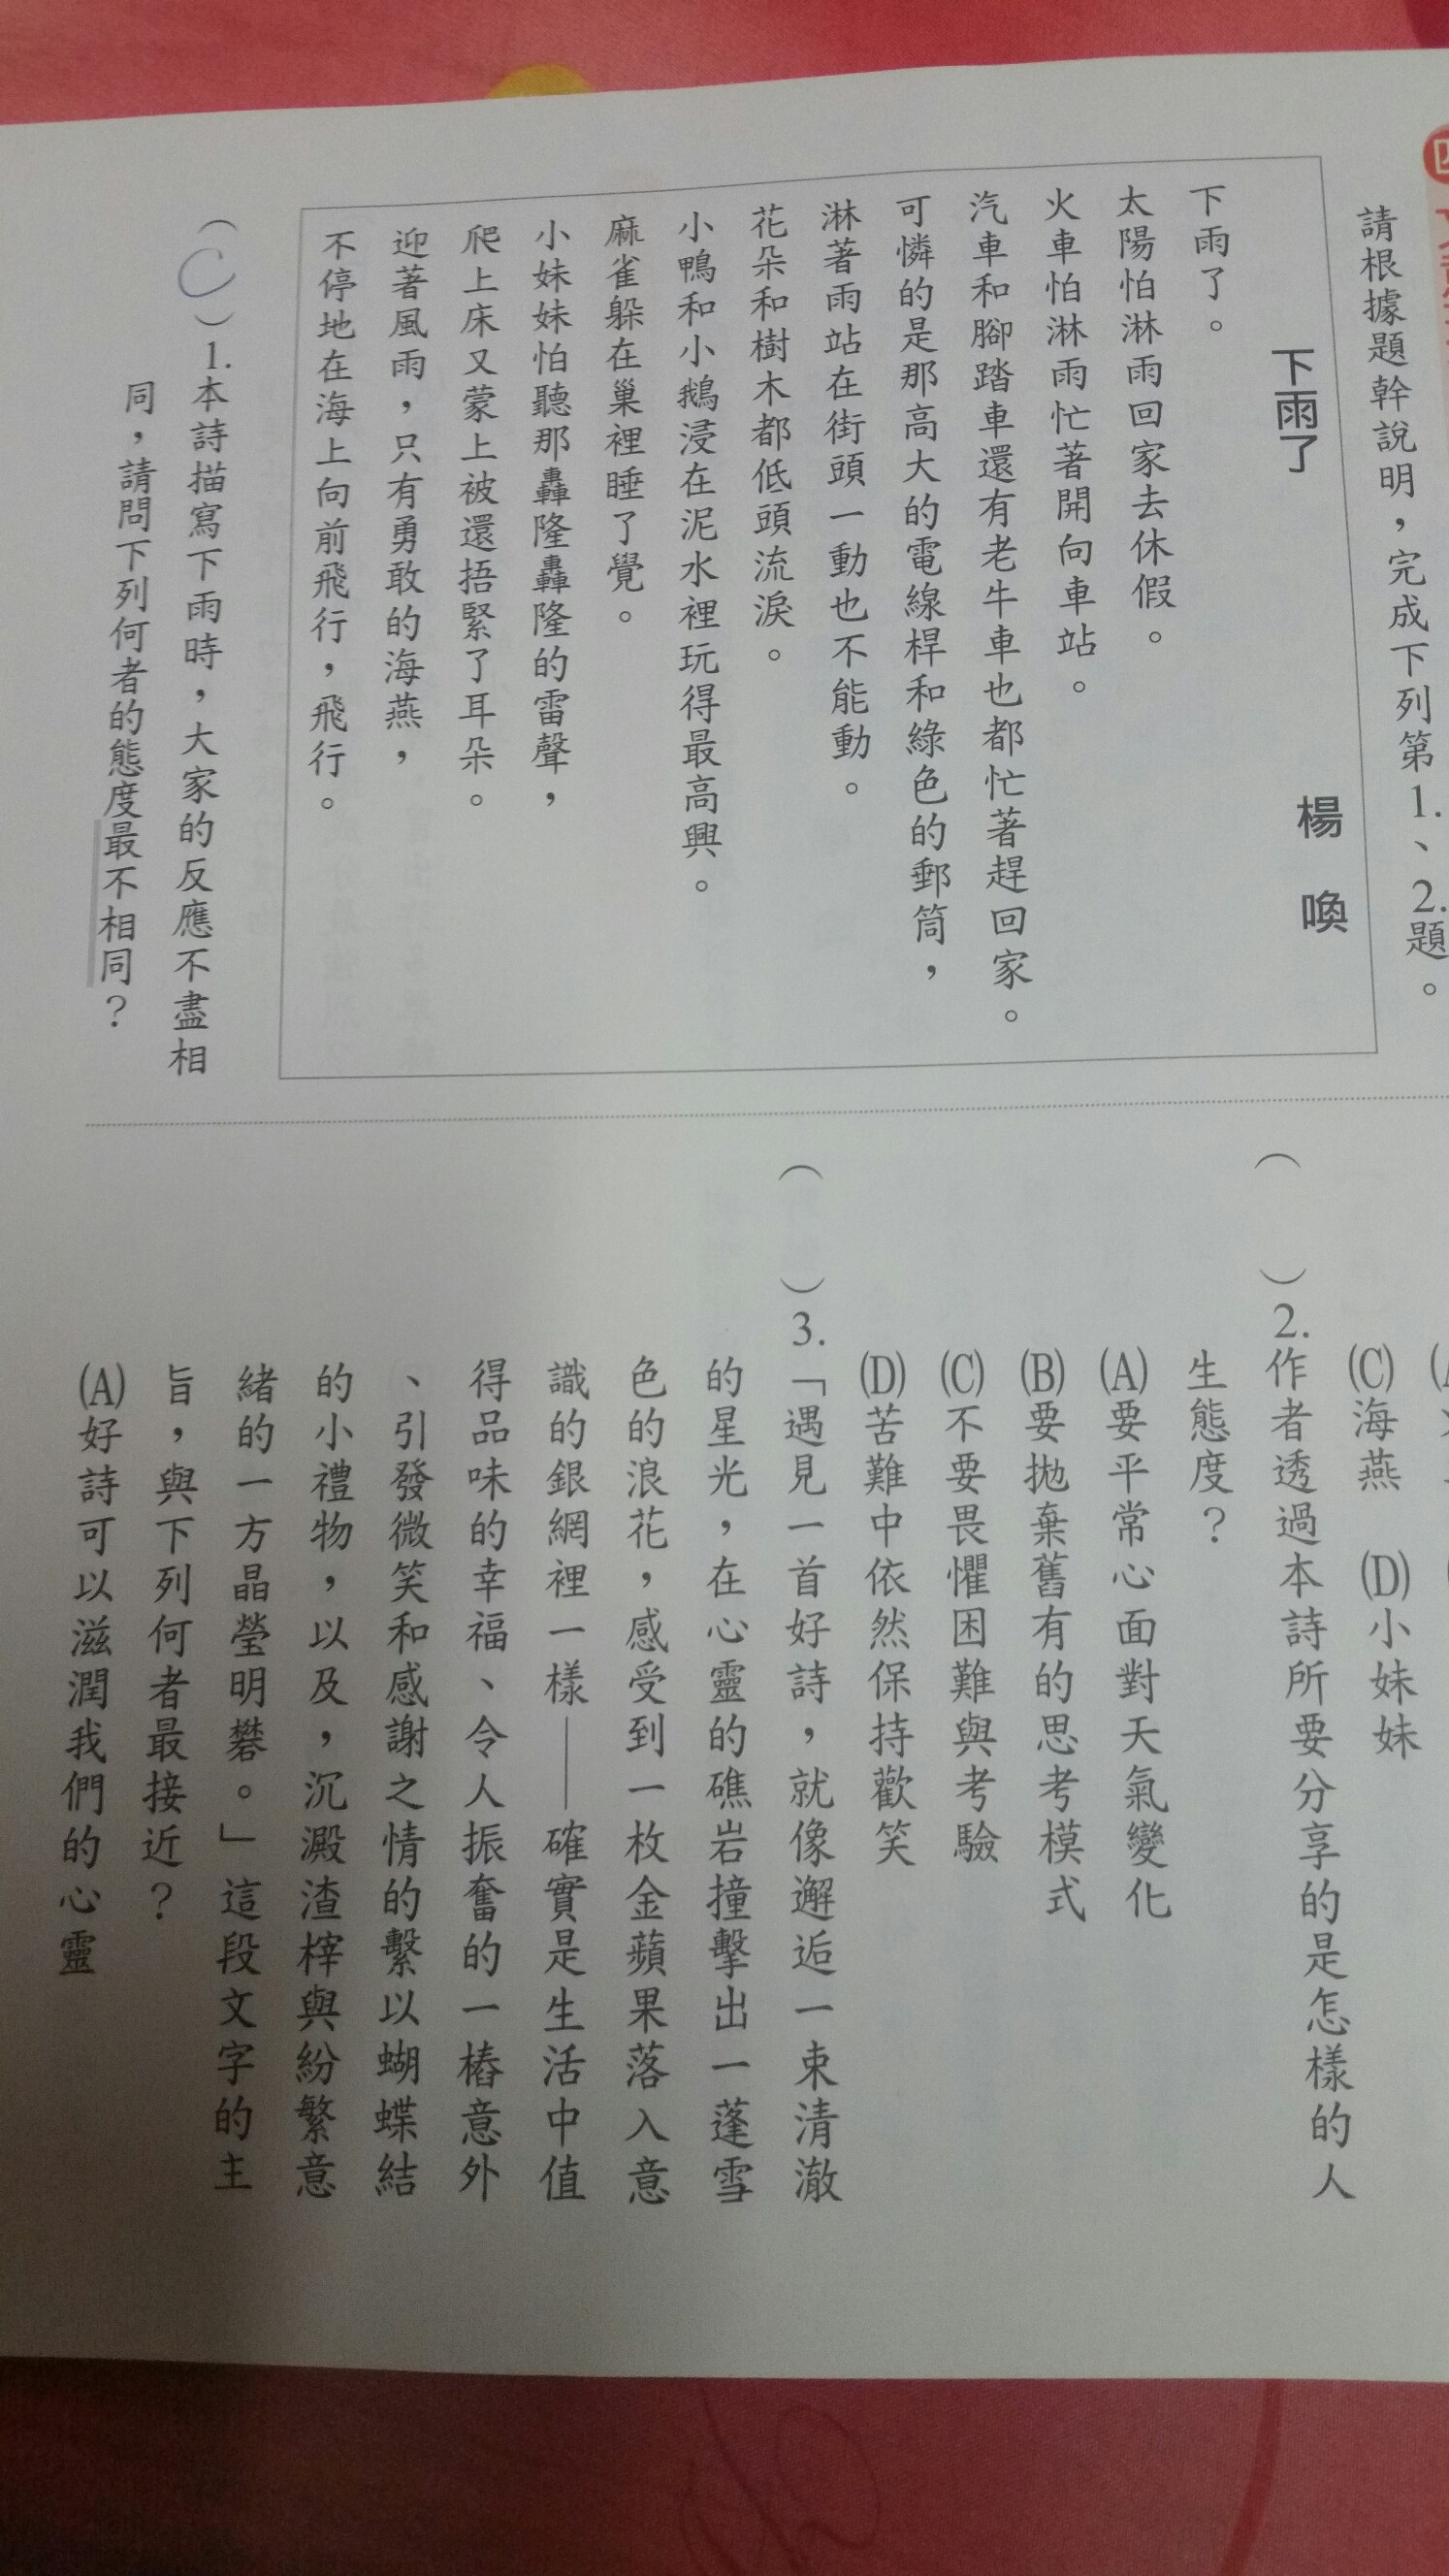 請根據題幹說明，完成下列第1.、2.題。
下雨了 楊 喚
下雨了。
太陽怕淋雨回家去休假。
火車怕淋雨忙著開向車站。
汽車和腳踏車還有老牛車也都忙著趕回家。
可憐的是那高大的電線桿和綠色的郵筒，
淋著雨站在街頭一動也不能動。
花朵和樹木都低頭流淚。
小鴨和小鵝浸在泥水裡玩得最高興。
麻雀躲在巢裡睡了覺。
小妹妹怕聽那轟隆轟隆的雷聲，
爬上床又蒙上被還捂緊了耳朵。
迎著風雨，只有勇敢的海燕，
不停地在海上向前飛行，飛行。
（C）1.本詩描寫下雨時，大家的反應不盡相
同，請問下列何者的態度最不相同？
(C)海燕 (D)小妹妹
（ ）2.作者透過本詩所要分享的是怎樣的人
生態度？
(A)要平常心面對天氣變化
(B)要拋棄舊有的思考模式
(C)不要畏懼困難與考驗
(D)苦難中依然保持歡笑
（ ）3.「遇見一首好詩，就像邂逅一束清澈
的星光，在心靈的礁岩撞擊出一蓬雪
色的浪花，感受到一枚金蘋果落入意
識的銀網裡一樣——確實是生活中值
得品味的幸福、令人振奮的一樁意外
、引發微笑和感謝之情的繫以蝴蝶結
的小禮物，以及，沉澱渣榟與紛繁意
緒的一方晶瑩明礬。」這段文字的主
旨，與下列何者最接近？
(A)好詩可以滋潤我們的心靈